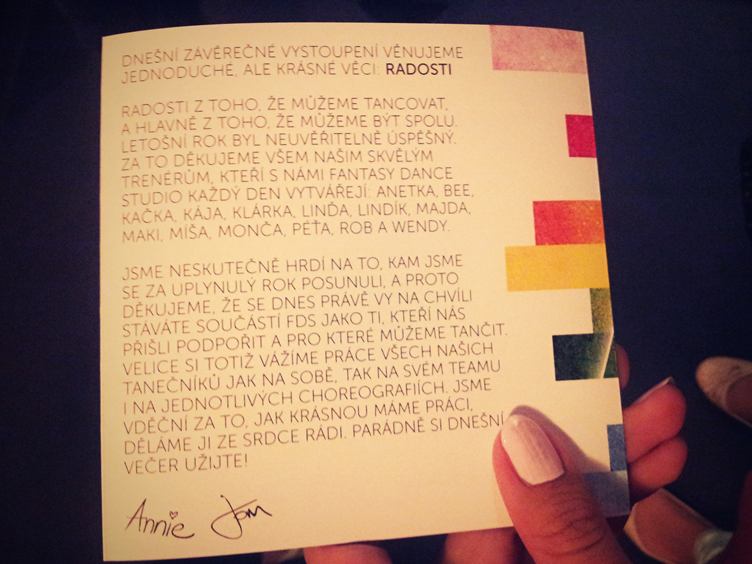 DNEŠNÍ ZÁVĚREČNÉ VYSTOUPENÍ VĚNUJEME
JEDNODUCHÉ, ALE KRÁSNÉ VĚCI: RADOSTI
RADOSTI Z TOHO, ŽE MŮŽEME TANCOVAT,
A HLAVNĚ Z TOHO, ŽE MŮŽEME BÝT SPOLU.
LETOŠNÍ ROK BYL NEUVĚŘITELNĚ ÚSPĚŠNÝ.
ZA TO DĚKUJEME VŠEM NAŠIM SKVĚLÝM
TRENÉRŮM, KTEŘÍ S NÁMI FANTASY DANCE
STUDIO KAŽDÝ DEN VYTVÁŘEJÍ: ANETKA, BEE,
KAČKA, KÁJA, KLÁRKA, LINĎA, LINDÍK, MAJDA,
MAKI, MÍŠA, MONČA, PÉŤA, ROB A WENDY.
JSME NESKUTEČNĚ HRDÍ NA TO, KAM JSME
SE ZA UPLYNULÝ ROK POSUNULI, A PROTO
DĚKUJEME, ŽE SE DNES PRÁVĚ VY NA CHVÍLI
STÁVÁTE SOUČÁSTÍ FDS JAKO TI, KTEŘÍ NÁS
PŘIŠLI PODPOŘIT A PRO KTERÉ MŮŽEME TANČIT.
VELICE SI TOTIŽ VÁŽÍME PRÁCE VŠECH NAŠICH
TANEČNÍKŮ JAK NA SOBĚ, TAK NA SVÉM TEAMU
I NA JEDNOTLIVÝCH CHOREOGRAFIÍCH. JSME
VDĚČNÍ ZA TO, JAK KRÁSNOU MÁME PRÁCI,
DĚLÁME JI ZE SRDCE RÁDI. PARÁDNĚ SI DNEŠNÍ
VEČER UŽIJTE!
Annie Jam